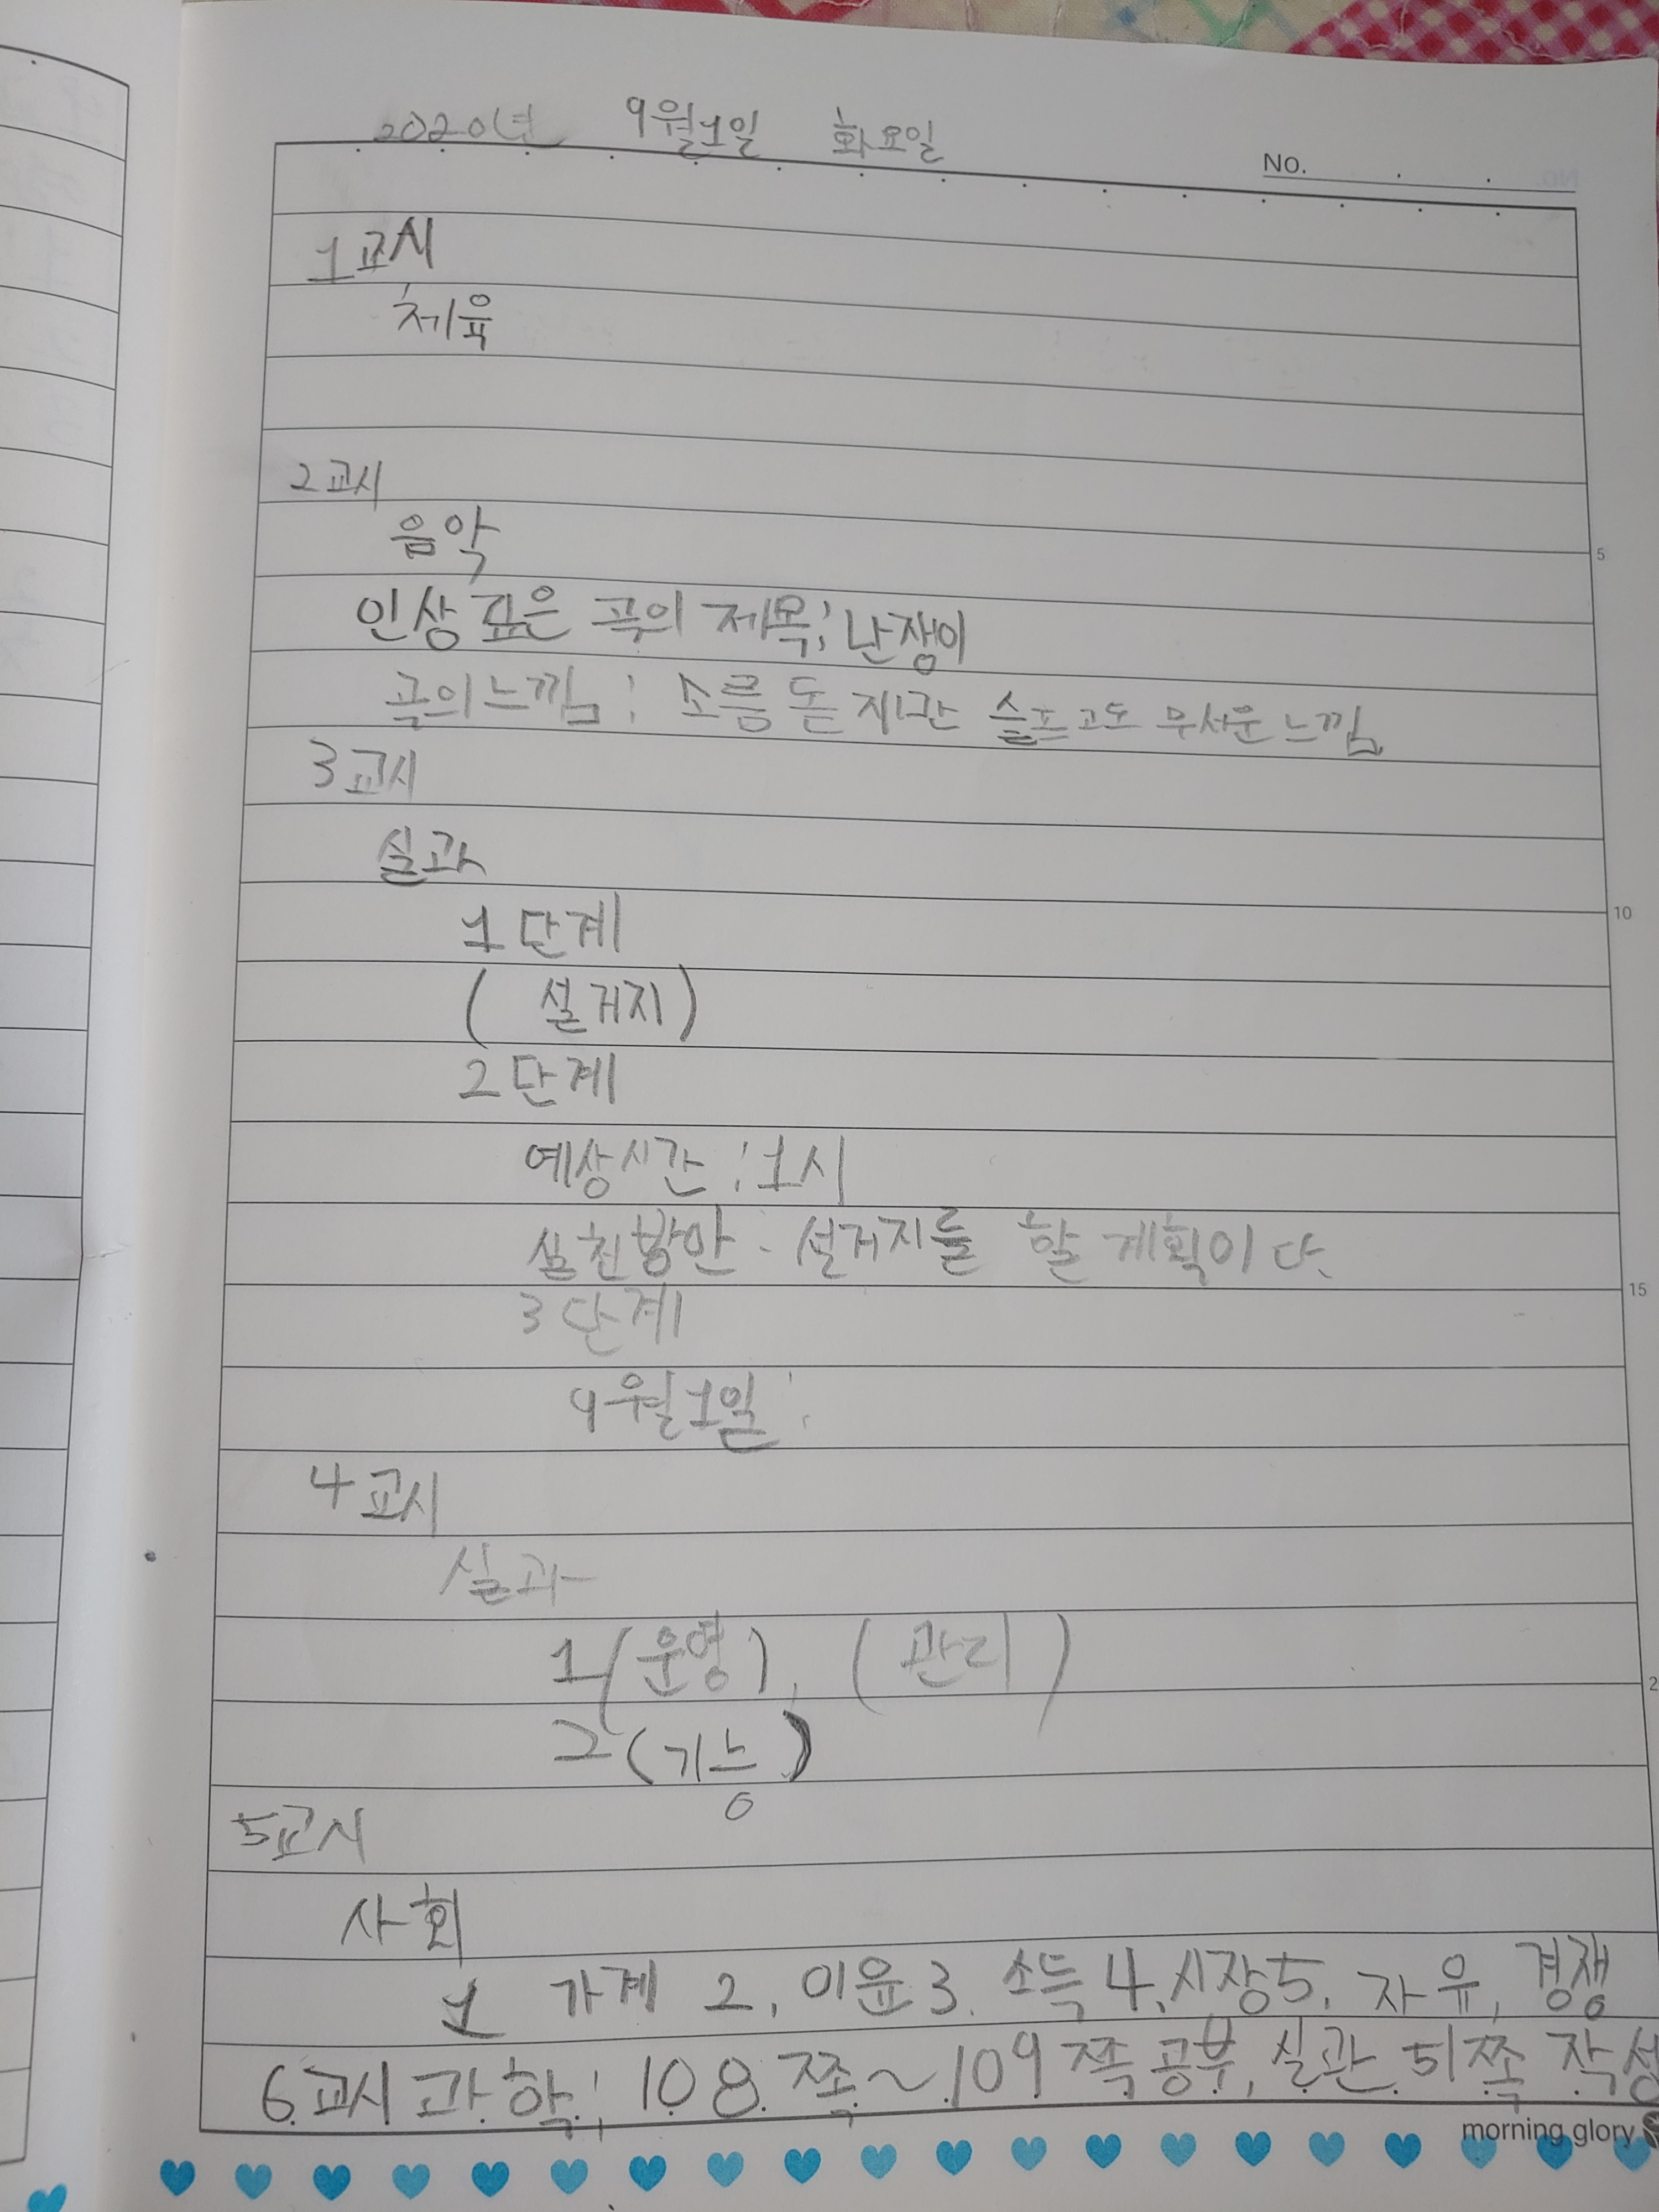 2020년 9월1일 화요일
No.
1교시
체육
2교시
음악
5
인상 깊은 곡의 제목: 난쟁이
곡의느낌: 소름 돋지만 슬프고도 무서운느낌
3교시
실과
1단계
10
( 설거지)
2단계
예상시간:1시
실천방안: 설거지를 할 계획이다.
15
3단계
9월1일:
4교시
실과
1(운영), (관리)
2(기능)
5교시
사회
1 가계 2. 이윤 3. 소득 4.시장 5. 자유, 경쟁
6교시 과학: 108쪽~109쪽 공부, 실관 51쪽 작성
morning glory